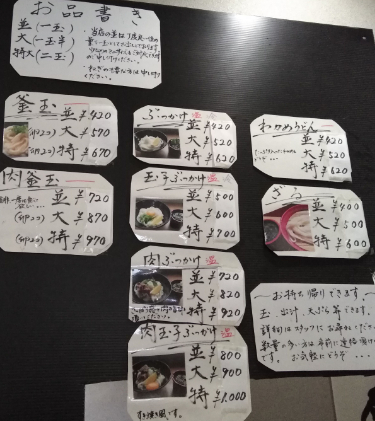 お品書き
並(一玉)
大(一玉半)
特大(二玉)
釜玉
並 ¥420
(卵2コ) 大 ¥570
(卵2コ) 特 ¥670
肉釜玉
並 ¥720
大 ¥870
(卵2コ) 特 ¥970
ぶっかけ 温
並 ¥420
大 ¥520
特 ¥620
玉子ぶっかけ 温
並 ¥500
大 ¥600
特 ¥700
肉ぶっかけ 温
並 ¥720
大 ¥820
特 ¥920
肉玉子ぶっかけ 温
並 ¥800
大 ¥900
特 ¥1,000
すき焼き風です。
わかめうどん
並 ¥420
大 ¥520
特 ¥620
ざる
並 ¥400
大 ¥500
特 ¥600
〜お持ち帰りできます〜
玉、出汁、天ぷら等できます。
詳細はスタッフにお尋ねください。
数量の多い方は事前に連絡頂けると
です。お気軽にどうぞ・・・